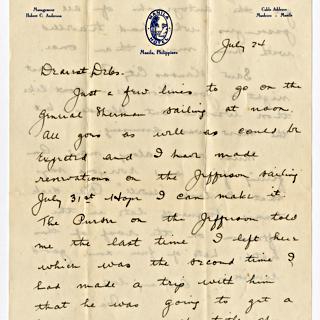 Management
Robert C. Anderson
MANILA HOTEL
Manila, Philippines
Cable Address
Manhotco - Manila
July 24
Dearest Debs.
Just a few lines to go on the
General Sherman sailing at noon.
All goes as well as could be
expected and I have made
reservations on the Jefferson sailing
July 31st Hope I can make it.
The Purser on the Jefferson told
me the last time I left here
which was the second time I
had made a trip with him
that he was going to get a